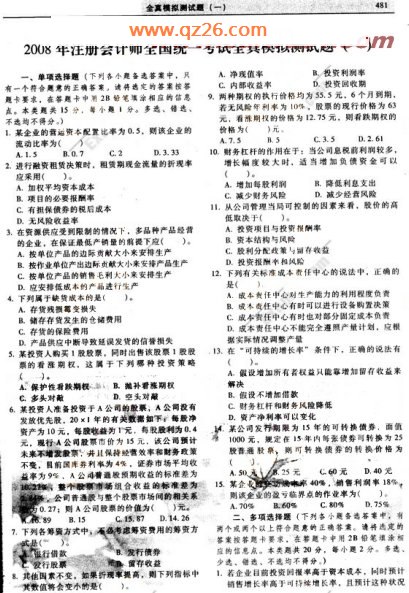 全真模拟测试题（一）
481
www.qz26.com
2008 年注册会计师全国统一考试全真模拟测试题
一、单项选择题（下列各小题备选答案中，只
有一个符合题意的正确答案。请将选定的答案按答
题卡要求，在答题卡中用2B铅笔填涂相应的信息
点。本类题共 15 分，每小题 1 分。多选、错选、
不选均不得分。）
1. 某企业的营运资本配置比率为 0.5，则该企业的
流动比率为（
A. 1.5 B. 0.7 C. 2 D. 3.33
2. 进行融资租赁决策时，租赁期现金流量的折现率
应采用（ ）。
A. 加权平均资本成本
B. 项目的必要报酬率
C. 有担保债券的税后成本
D. 无风险收益率
3. 在资源供应受到限制的情况下，多品种产品经营
的企业，在保证最低产销量的前提下应（ ）。
A. 按单位产品的边际贡献大小来安排生产
B. 按作业单位产出边际贡献大小来安排产品生产
C. 按单位产品的销售毛利大小来安排生产
D. 应安排低成本的产品进行生产
4. 下列属于缺货成本的是（ ）。
A. 存货残损霉变损失
B. 储存存货发生的仓储费用
C. 存货的保险费用
D. 产品供应中断导致延误发货的信誉损失
5. 某投资人购买 1 股股票，同时出售该股票 1 股股
票的看涨期权，这属于下列哪种投资策略
（ ）。
A. 保护性看跌期权 B. 抛补看涨期权
C. 多头对敲 D. 空头对敲
6. 某投资人准备投资于 A 公司的股票，A 公司没有
发放优先股，20×1 年的有关数据如下：每股净
资产为 10 元，每股收益为 1 元，每股股利为 0.4
元，现行 A 公司股票市价为 15 元，该公司预计
未来不增发股票，并且保持经营效率和财务政策
不变，目前国库券利率为 4%，证券市场平均收
益率为 9%，A 公司普通股预期收益的标准差为
10.27%，整个股票市场组合收益的标准差为
公司普通股与整个股票市场间的相关系
数为 0.27；则 A 公司股票的价值为（ ）元。
A. 16.89 B. 15 C. 15.87 D. 14.26
7. 下列各筹资方式中，不必考虑筹资费用的筹资方
式是
银行借款 B. 发行债券
C. 发行股票 留存收益
8. 其他因素不变，如果折现率提高，则下列指标中
其数值将会变小的是（
A. 净现值率 B. 投资利润率
C. 内部收益率 D. 投资回收期
9. 两种期权的执行价格均为 55.5 元，6 个月到期，
若无风险年利率为 10%，股票的现行价格为 63
元，看涨期权的价格为 12.75 元，则看跌期权的
价格为（ ）元。
A. 7.5 B. 5 C. 3.5 D. 2.61
10. 财务杠杆的作用在于：当公司息税前利润较多，
增长幅度较大时，适当增加负债资金可以
（ ）。
A. 增加每股利润 B. 降低利息支出
C. 减少财务风险 D. 减少经营风险
11. 从公司管理当局可控制的因素来看，股价的高
低取决于（ ）。
A. 投资项目与投资报酬率
B. 资本结构与风险
C. 股利分配政策与留存收益
D. 投资报酬率和风险
12. 下列有关标准成本责任中心的说法中，正确的
是（ ）
A. 成本责任中心对生产能力的利用程度负责
B. 成本责任中心有时可以进行设备购置决策
C. 成本责任中心有时也对部分固定成本负责
D. 成本责任中心不能完全遵照产量计划，应根
据实际情况调整产量
13. 在“可持续的增长率”条件下，正确的说法有
（ ）。
A. 假设增加所有者权益只能靠增加留存收益来
解决
B. 假设不增加借款
C. 财务杠杆和财务风险降低
D. 资产净利率可以变化
14. 某公司发行期限为 15 年的可转换债券，面值
1000 元，规定在 15 年内每张债券可转换为 25
股普通股票，则可转换债券的转换价格为
A. 50 元 B. 25 元 C. 60 元 D. 40 元
15. 某企业 40%，销售利润率 18%，
则该企业的盈亏临界点的作业率为（ ）。
A. 70% B. 60% C. 80% D. 75%
二、多项选择题（下列各小题备选答案中，有
两个或两个以上符合题意的正确答案。请将选定的
答案按答题卡要求，在答题卡中用 2B 铅笔填涂相
应的信息点。本类题共 20 分，每小题 2 分。多选、
少选、错选、不选均不得分。）
1. 若企业目前投资回报率高于资本成本，同时预计
销售增长率高于可持续增长率，且预计这种状况